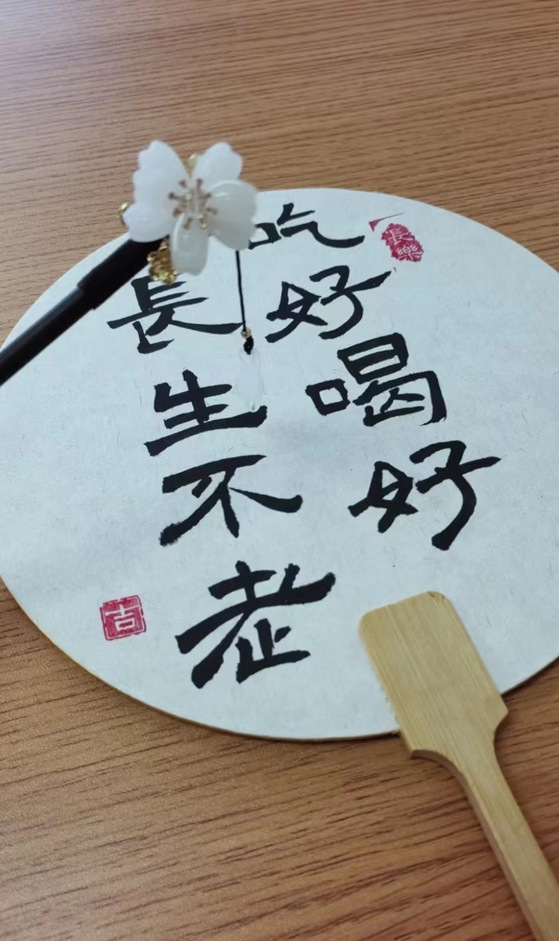 吃好喝好
長生不老
長樂
吉